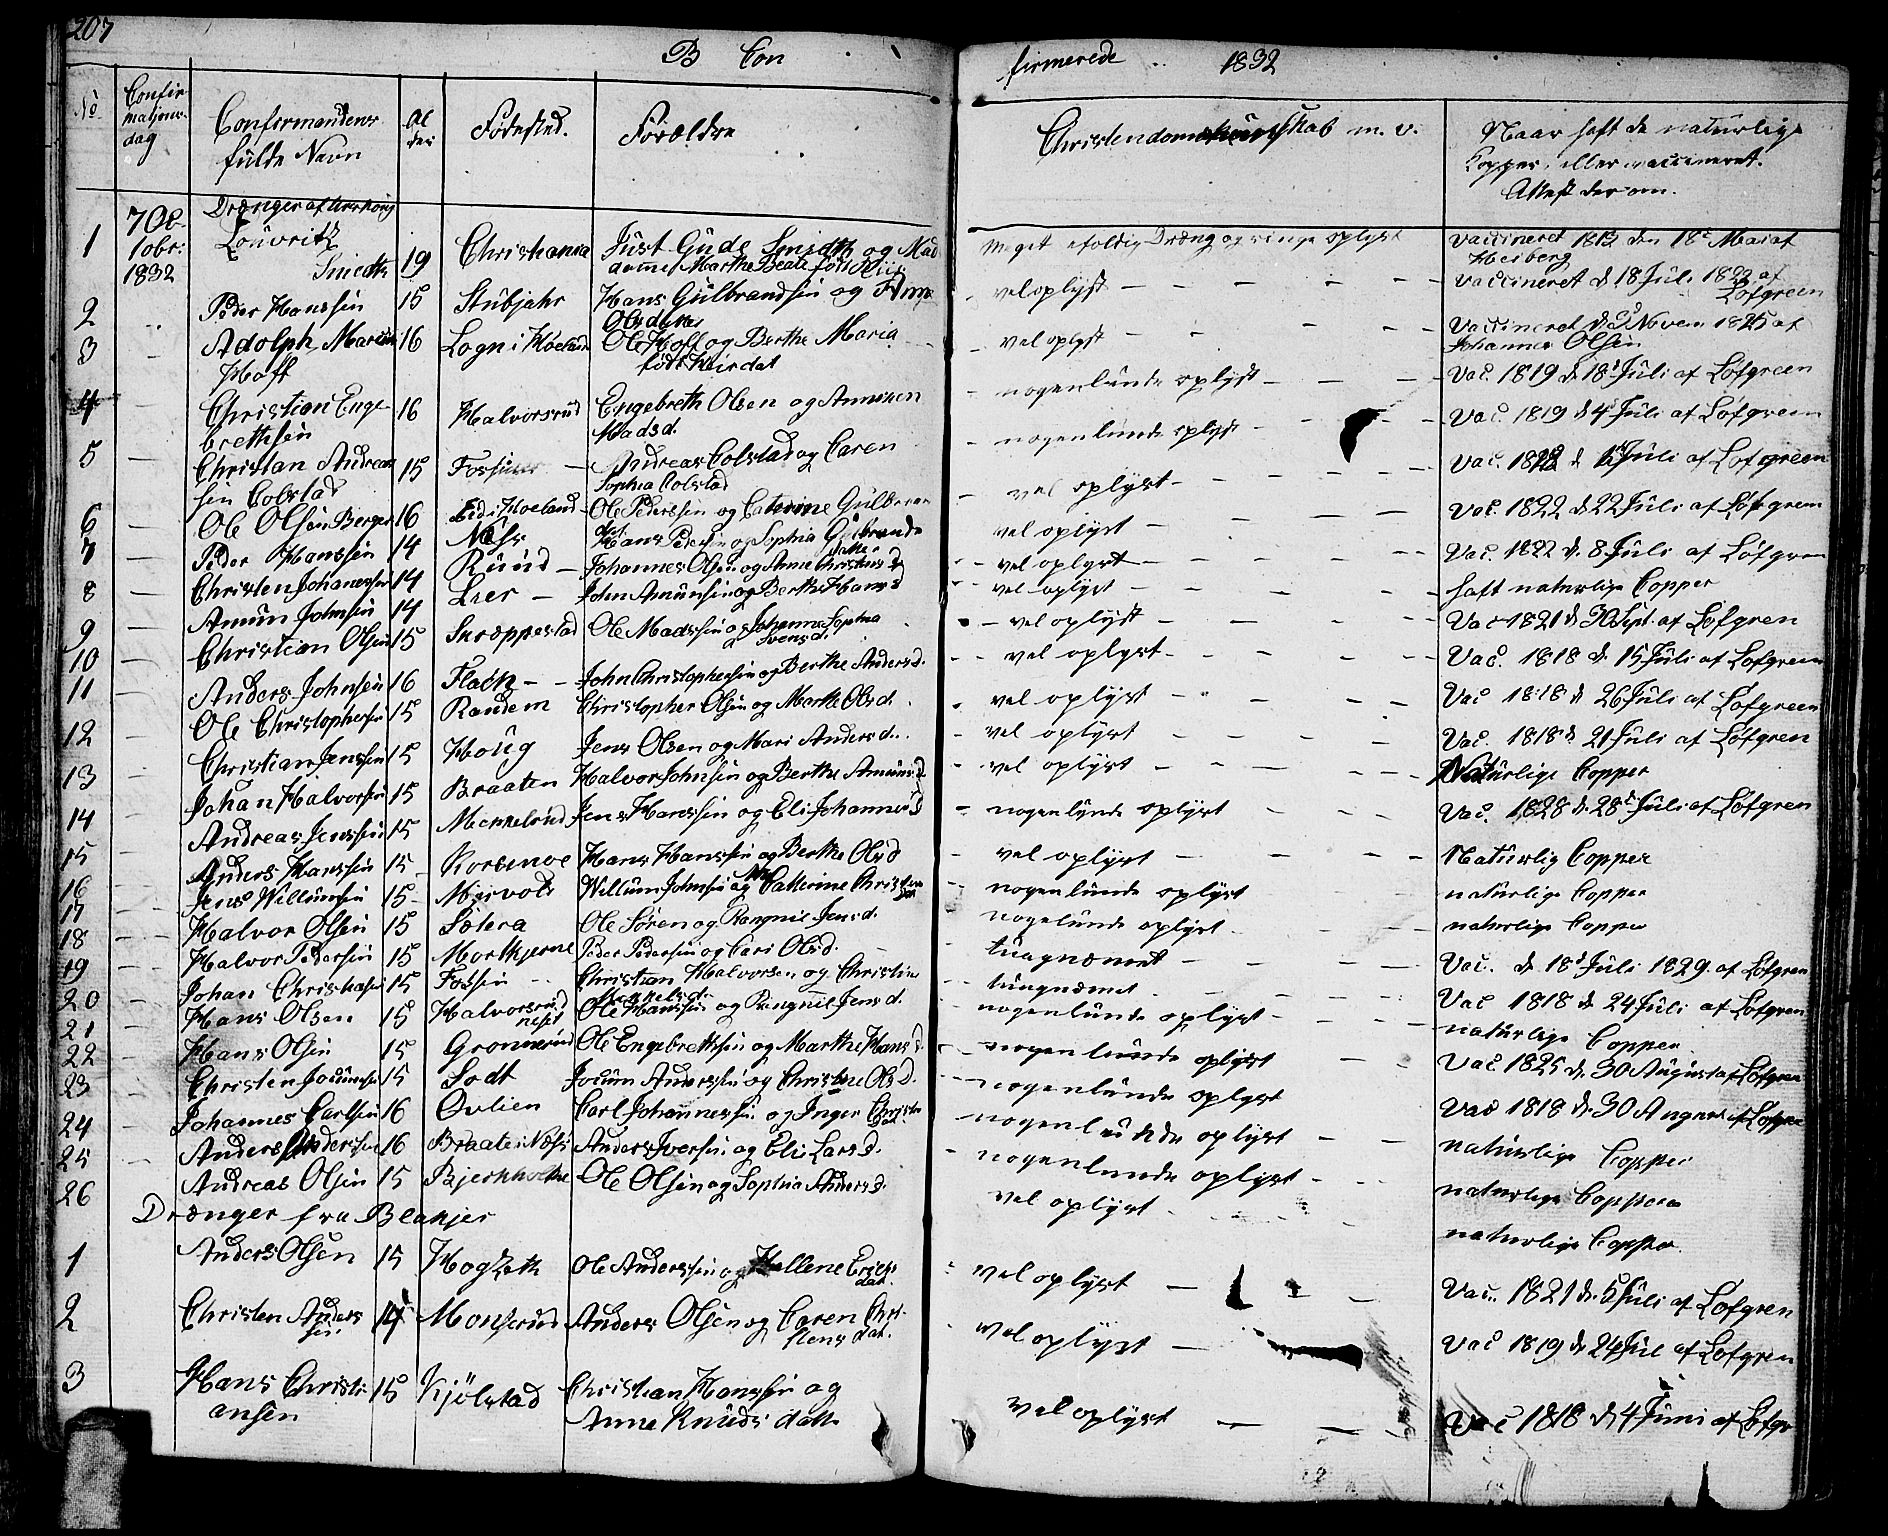 207
B Con firmerede 1832
No Confirmations dag Confirmandens fulde Navn Alder Fødested. Forældre Christendomskundskab m. v. Naar haft de naturlige Kopper, eller vaccineret. Attest derom.
Drænger af
1 7de 8br: 1832 Louvritz Smedth 19 Christiania Just Gude Smidth og Madame Marthe Beate født meget efoldig Dræng og ringe oplyst vaccineret 1813 den 18de Mai af Heiberg
2 Peder Hanssen 15 Stubjahr Hans Gulbrandsen og Anne Olsdatter vel oplyst vaccineret d 18 Juli 1822 af Löfgreen
3 Adolph Hoff 16 Logn i Høeland Ole Hoff og Berthe Maria født vel oplyst vaccineret d. Novem 1825 af Johannes Olsen
4 Christian Engebrethsen 16 Halvorsrud Engebreth Olsen og Anniken Madsd. nogenlunde oplyst Vac. 1819 d 18d Juli af Löfgreen
5 Christian Andreassen Colstad 15 Andreas Colstad og Caren Sophia Colstad nogenlunde oplyst Vac. 1819 d 4 Juli af Löfgreen
6 Ole Olsen Berger 16 Eid i Høeland Ole Pederssen og Catrine Gulbran dat vel oplyst Vac. d Juli af Löfgreen
7 Peder Hanssen 14 Næss Hans Pedersen og Sophia Gulbrands datter vel oplyst Vac. 1822 d 22 Juli af Löfgreen
8 Christen Johanessen 14 Ruud Johannes Olsen og Anne Christensd vel oplyst Vac. 1822 d. 8 Juli af Löfgren
9 Amun Johnsen 14 Lier John Amunsen og Berthe Hansd vel oplyst haft naturlige Copper
10 Christian Olsen 15 Snæppestad Ole Madssen og Johanne Sophia Svensd. vel oplyst Vac 1821 d 30 Sept. af Löfgren
11 Anders Johnsen 16 Flaön John Christophersen og Berthe Andersd. vel oplyst Vac. 1818 d. 15 Juli af Löfgreen
12 Ole Christophersen 15 Randem Christopher Olsen og Marthe Olsd. vel oplyst Vac 1818 d 26 Juli af Löfgreen
13 Christian Jenssen 15 Houg Jens Olsen og Mari Andersd. vel oplyst Vac. 1818 d. 21 Juli af Löfgren
14 Johan Halvorsen 15 Braaten Halvor Johnsen og Berthe Amunsd vel oplyst Naturlige Copper
15 Andreas Jenssen 15 Menkelrud Jens Hanssen og Eli Johannesd nogenlunde oplyst Vac. 1828 d. 28d Juli af Löfgren
16 Anders Hanssen 15 Korsmoe Hans Hanssen og Berthe Olsd vel oplyst Naturlig Copper
17 Jens Willumsen 15 Mjervold Willum Johnsen og Catterine Christen nogenlunde oplyst naturlige Copper
18 Halvor Olsen 15 Sotera Ole Sören og Rangnil Jensd. nogelunde oplyst naturlige Copper
19 Halvor Pedersen 15 Morthjerne Peder Pedersen og Cari Olsd. tungnæmet Vac. d 18d Juli 1829 af Löfgren
20 Johan Christiansen 15 Fossen Christian Halvorsen og Christine tungnæmet Vac 1818 d 24 Juli af Löfgren
21 Hans Olsen 15 Halvorsrud Ole Hanssen og Rangnil Jensd. nogenlunde oplyst naturlige Copper
22 Hans Olsen 15 Gronnerud Ole Engebretssen og Marthe Hansd. nogenlunde oplyst Vac 1825 d. 30 August af Löfgren
23 Christen Jocumsen 15 Sodt Jocum Anderssen og Christine Olsd. nogenlunde oplyst Vac 1818 d. 30 August af Löfgren
24 Johannes Carlsen 16 Ovlien Carl Johannessen og Inger Christen dat. nogenlunde oplyst naturlige Copper
25 Anders Anderssen 16 Braaten i Næss Anders Iversen og Eli Larsd. nogenlunde oplyst naturlige Copper
26 Andreas Olsen 15 Bjerkholtne Ole Olsen og Sophia Andersd. vel oplyst naturlige Copper
Drænger fra Blakjer
1 Anders Olsen 15 Hogzeth Ole Anderssen og Hellene Erichs dat. vel oplyst Vac. 1821 d. Juli af Löfgren
2 Christen Anders sen. 14 Monserud Anders Olsen og Caren Christens dat. vel oplyst Vac 1819 d. 24 Jul af Löfgren
3 Hans Christiansen 15 Kjölstad Christian Hanssen og Anne Knuds datter vel oplyst Vac 1818 d 4 Juni af Löfgr